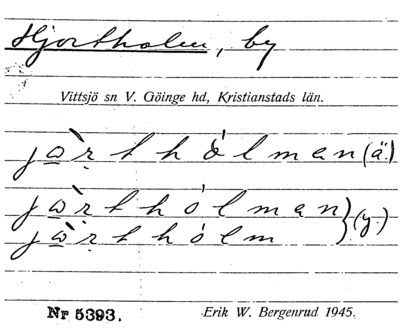 Hjortholm, by
Vittsjö sn V. Göinge hd, Kristianstads län.
jò̲ṛthólman (ä.)
jò̲ṛthólman } (y.)
jò̲ṛthólm
Nr 5393. Erik W. Bergenrud 1945.